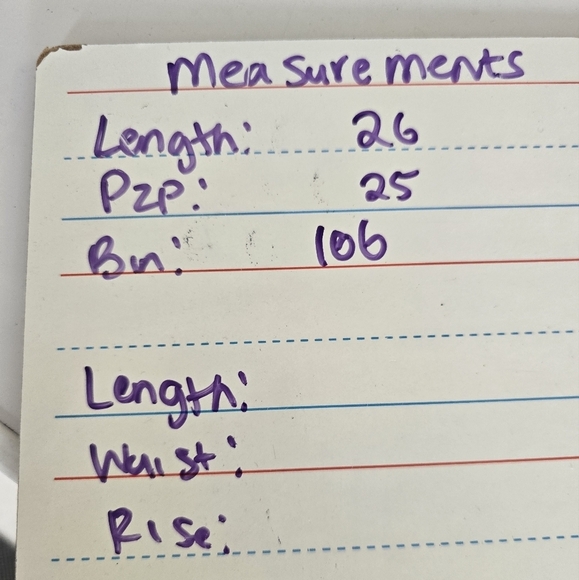 Measurements
Length: 26
P2P: 25
Bin: 106
Length:
Waist:
Rise: